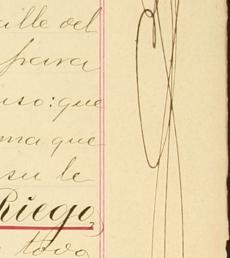 aille del
para
uso: que
ma que
su le
Riego,
todo